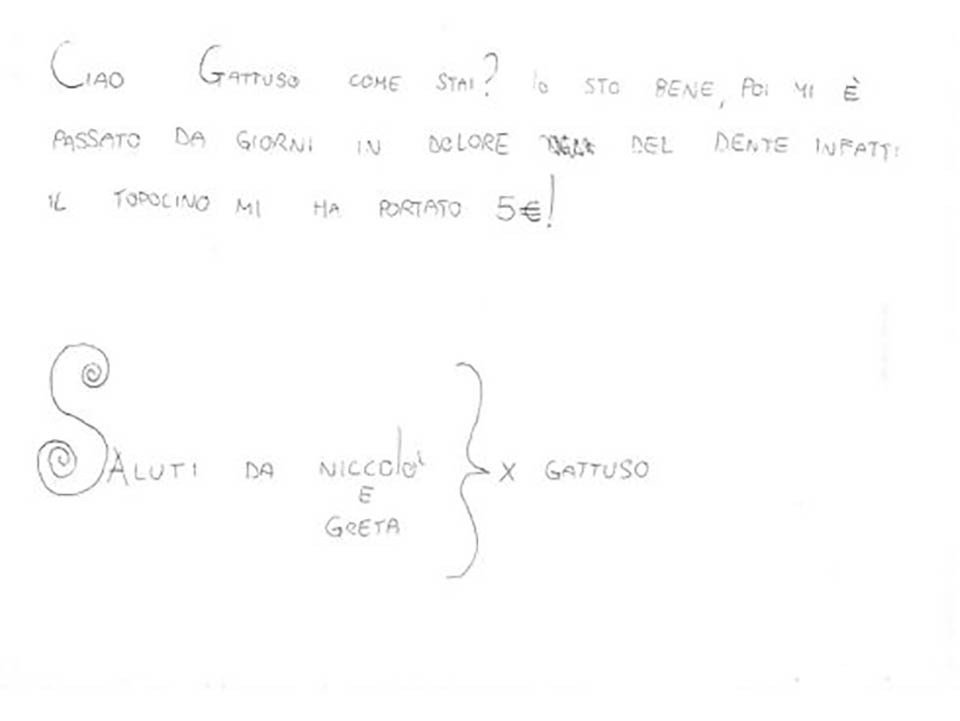 Ciao Gattuso come stai? Io sto bene, poi mi è
passato da giorni in dolore del dente infatti
il topolino mi ha portato 5€!
Saluti da Niccolò } x Gattuso
e
Greta